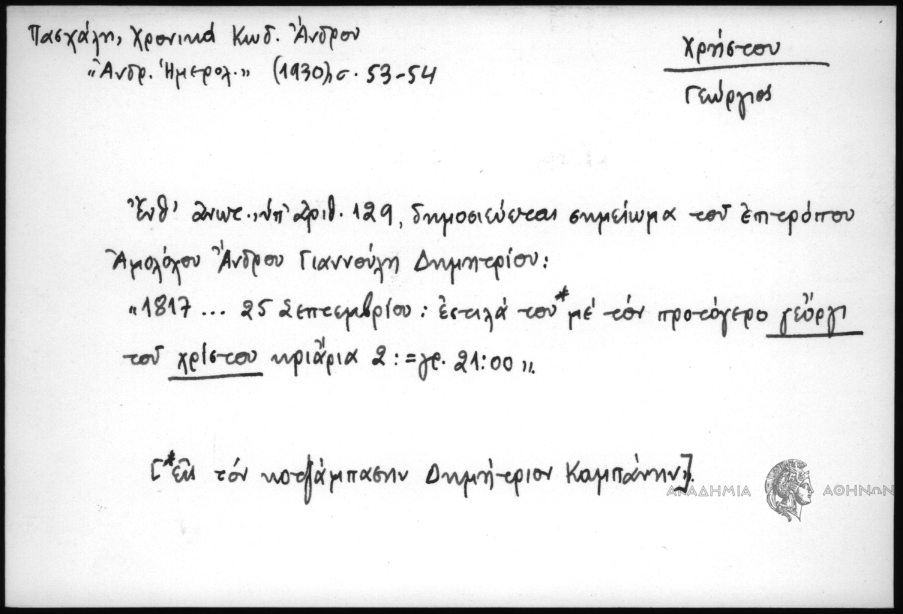 Πασχάλη, Χρονικά Κωδ. Ἄνδρου
"Ἀνδρ. Ἡμερολ." (1930), σ. 53-54
Χρήστου
Γεώργιος
Ἔνθ' ἀνωτ., ὑπ' ἀριθ. 129, δημοσιεύεται σημείωμα τοῦ ἐπιτρόπου
Ἀμολόχου Ἄνδρου Γιαννούλη Δημητρίου:
"1817 ... 25 Σεπτεμβρίου: ἐστιλά του* μέ τόν προτόγερο γεὄργι
τοῦ χρίστου κριἄρια 2: = γρ. 21:00".
[*εἰς τόν κοτζάμπασην Δημήτριον Καμπάνην].
ΑΚΑΔΗΜΙΑ ΑΘΗΝΩΝ